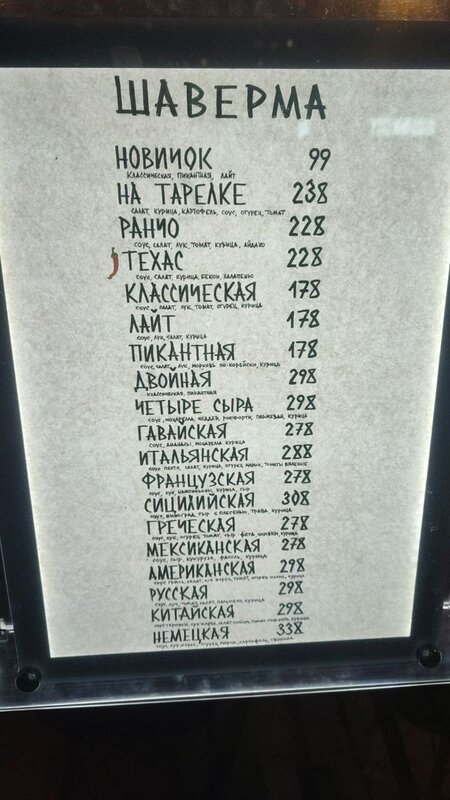 ШАВЕРМА
НОВИЧОК 99
КЛАССИЧЕСКАЯ, ПИКАНТНАЯ, ЛАЙТ
НА ТАРЕЛКЕ 238
САЛАТ, КУРИЦА, КАРТОФЕЛЬ, СОУС, ОГУРЕЦ, ТОМАТ
РАНЧО 228
СОУС, САЛАТ, ЛУК, ТОМАТ, КУРИЦА, АЙДАХО
ТЕХАС 228
СОУС, САЛАТ, КУРИЦА, БЕКОН, ХАЛАПЕНЬО
КЛАССИЧЕСКАЯ 178
СОУС, САЛАТ, ЛУК, ТОМАТ, ОГУРЕЦ, КУРИЦА
ЛАЙТ 178
СОУС, ЛУК, САЛАТ, КУРИЦА
ПИКАНТНАЯ 178
СОУС, САЛАТ, ЛУК, МОРКОВЬ ПО-КОРЕЙСКИ, КУРИЦА
ДВОЙНАЯ 298
КЛАССИЧЕСКАЯ, ПИКАНТНАЯ
ЧЕТЫРЕ СЫРА 298
СОУС, МОЦАРЕЛЛА, ЧЕДДЕР, РОКФОРТИ, ПАРМЕЗАН, КУРИЦА
ГАВАЙСКАЯ 278
СОУС, АНАНАСЫ, МОЦАРЕЛЛА КУРИЦА
ИТАЛЬЯНСКАЯ 288
СОУС ПЕСТО, САЛАТ, КУРИЦА, ОГУРЕЦ МАРИН, ТОМАТЫ ВЯЛЕНЫЕ
ФРАНЦУЗСКАЯ 278
СОУС, ЛУК, ШАМПИНЬОНЫ, КУРИЦА, СЫР
СИЦИЛИЙСКАЯ 308
СОУС, ВИНОГРАД, СЫР С ПЛЕСЕНЬЮ, ГРУША, КУРИЦА
ГРЕЧЕСКАЯ 278
СОУС, ЛУК, ОГУРЕЦ, ТОМАТ, СЫР ФЕТА, ОЛИВКИ, КУРИЦА
МЕКСИКАНСКАЯ 278
СОУС, СЫР, КУКУРУЗА, ФАСОЛЬ, КУРИЦА
АМЕРИКАНСКАЯ 298
СОУС ГРИЛЬ, САЛАТ, ЛУК ТОМАТ, ОГУРЕЦ КУРИЦА
РУССКАЯ 298
СОУС, ЛУК, САЛАТ, КУРИЦА
КИТАЙСКАЯ 298
СОУС ТЕРИЯКИ, ЛУК
НЕМЕЦКАЯ 338
СОУС, ЛУК ОГУРЕЦ КАРТОФЕЛЬ,